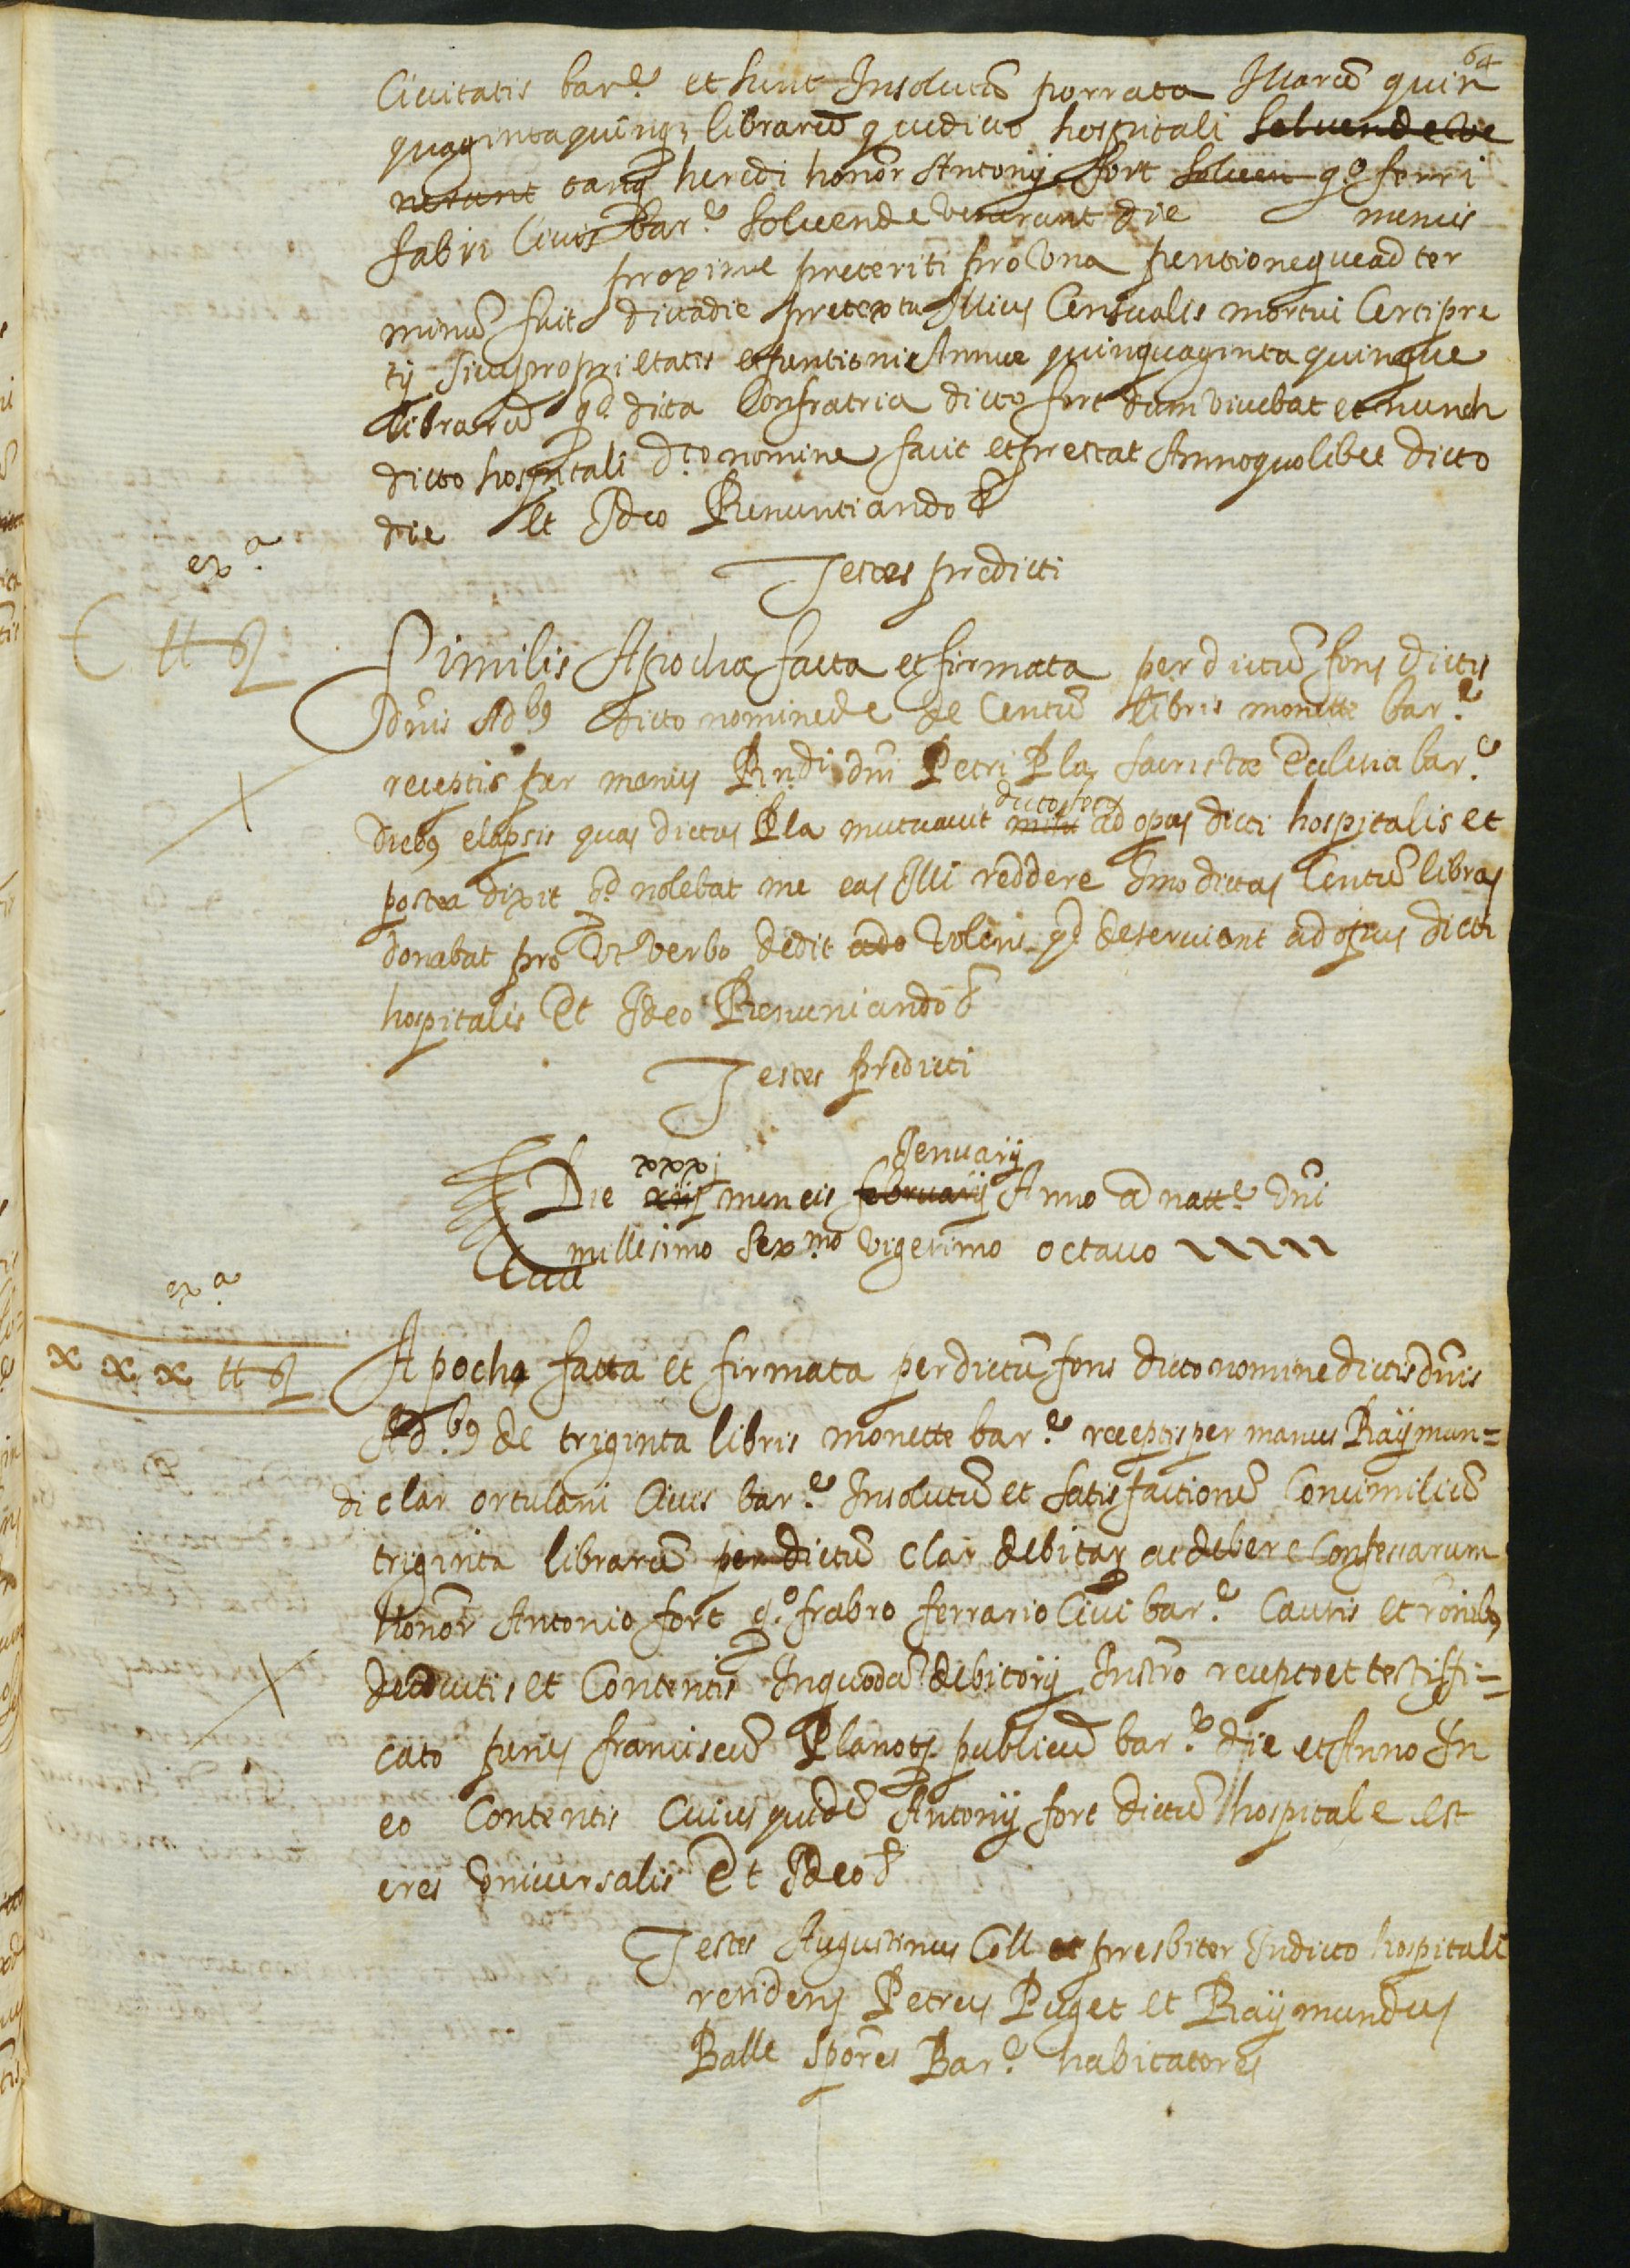 64
Ciuitatis barᵉ et sunt Insolutū porrata Illarū quin
quagintaquinqȝ librarū q̄ dicto hospitali soluende ve
nerunt tanq̄ heredi honor Antonij fort soluen qº ferri
fabri Ciuis barᵉ soluende venerunt die mensis
proxime preteriti pro Vna pentione que ad ter
minū fuit dicta die pretextu Illius Censualis mortui Certi pre
tij siue proprietatis et pentionis Annue quinquaginta quinque
librarū qd dita Confratria dicto fort dum viuebat et nunch
dicto hospitali dᵗᵒ nomine facit et prestat Anno quolibet dicto
die Et Ideo Renuntiando &
Testes predicti
exᵃ
C ℔ ß
Similis Apocha facta et firmata per dictū fons dictis
dn̄is Adᵇ⁹ dicto nomine de de Centū libris monette barᵉ
receptis per manus Rndi dn̄i Petri Pla sacristæ Ecclesia barᵉ
dieb⁹ elapsis quas dictus Pla mutuauit misi dicto fort ad opus dicti hospitalis et
postea dixit qd nolebat me eas Illi reddere Imo dictas Centū libras
donabat pro Vt verbo dedit ado Volens qd deseruient ad opus dicti
hospitalis Et Ideo Renuniando &
Testes predicti
Die xiij xxxj mencis februarij Jenuarij Anno a nattᵉ dn̄i
millesimo sexᵐᵒ vigesimo octauo
exᵃ
x x x ℔ ß
Apocha facta et firmata per dictū fons dicto nomine dictis dn̄is
Adᵇ⁹ de triginta libris monette barᵉ receptis per manus Raÿmun=
di clar ortulani Ciuis barᵉ Insolutū et satisfactionē Consimiliū
triginta librarū per dictū clar debitar ac debere Confessarum
honor Antonio fort qº frabro ferrario Ciui barᵉ Causis et ronib⁹
deductis et Contentis In quodā debitorij Instrō recepto et testiffi=
cato penes franciscū Pla notm publicū barᵉ die et Anno In
eo Contentis Cuius quidē Antonij fort dictū hospitale est
eres vniuersalis Et Ideo &
Testes Augustinus Coll et presbiter In dicto hospitali
residens Petrus Puget et Raÿmundus
Balle spōres Barᵉ habitatores